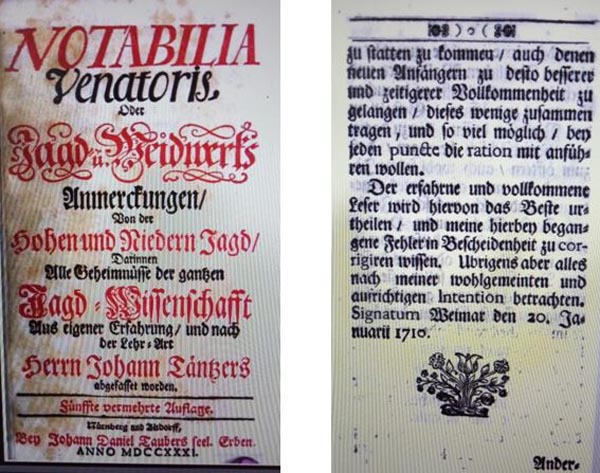 NOTABILIA
Venatoris,
Oder
Jagd- u. Weidwerks
Anmerckungen/
Von der
Hohen und Niedern Jagd/
Darinnen
Alle Geheimnüsse der gantzen
Jagd-Wissenschafft
Aus eigener Erfahrung/ und nach
der Lehr-Art
Herrn Johann Täntzers
abgefasset worden.
Fünffte vermehrte Auflage.
Nürnberg und Altdorff,
Bey Johann Daniel Taubers seel. Erben.
ANNO MDCCXXXI.
zu statten zu kommen/ auch denen
neuen Anfängern zu desto besserer
und zeitigerer Vollkommenheit zu
gelangen/ dieses wenige zusammen
tragen/ und so viel möglich/ bey
jeden puncte die ration mit anfüh-
ren wollen.
Der erfahrne und vollkommene
Leser wird hiervon das Beste ur-
theilen/ und meine hierbey began-
gene Fehler in Bescheidenheit zu cor-
rigiren wissen. Ubrigens aber alles
nach meiner wohlgemeinten und
aufrichtigen Intention betrachten.
Signatum Weimar den 20. Ja-
nuarii 1710.
Ander-